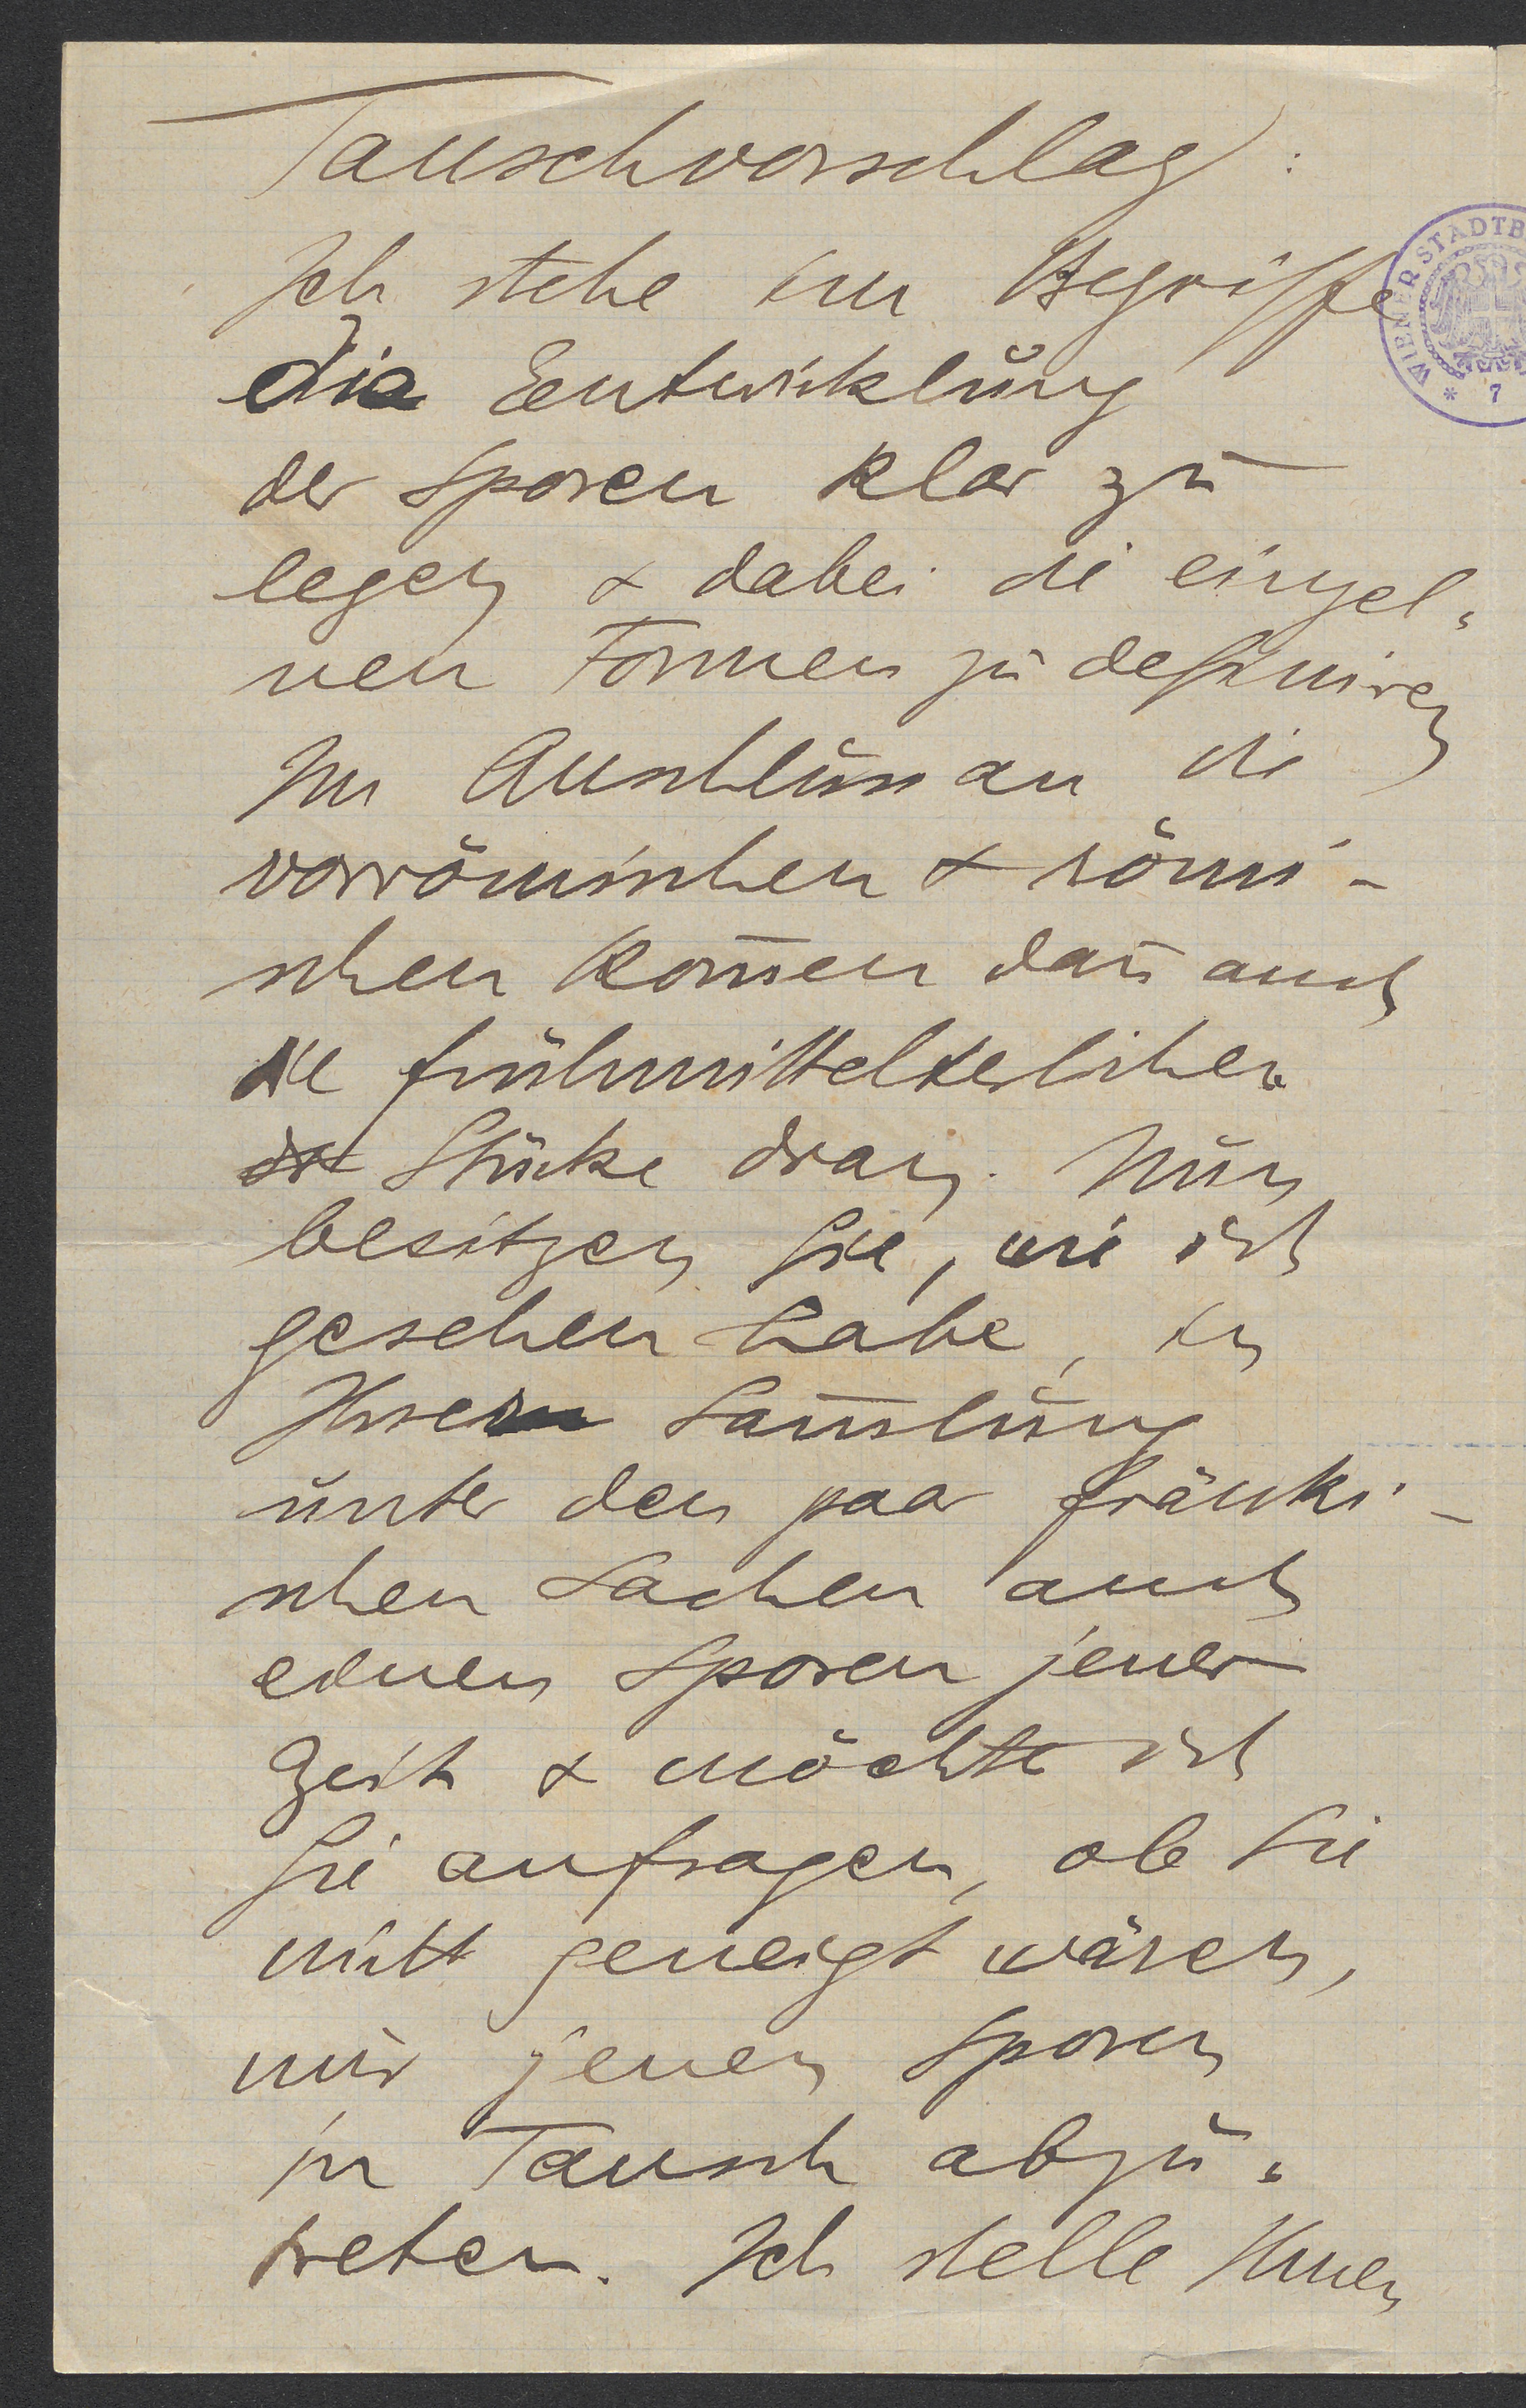 Tauschvorschlag:
Ich stehe im Begriffe
die Entwicklung
der Sporen klar zu
legen & dabei die einzel-
nen Formen zu definiren
Im Anschluss an die
vorrömischen & römi-
schen kom̄en dan̄ auch
die frühmittelterlichen
Stücke dran. Nun
besitzen Sie, wie ich
gesehen habe, in
Ihrer Sam̄lung
unter den paar fränki-
schen Sachen auch
einen Sporen jener
Zeit & möchte ich
Sie anfragen, ob Sie
nicht geneigt wären,
mir jenen Sporen
in Tausch abzu-
treten. Ich stelle Ihnen
WIENER STADTB
* 7